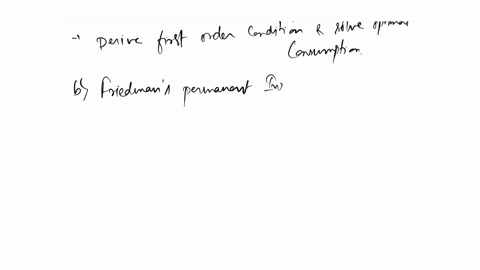 → Derive first order Condition & solve optimal
Consumption.
b) Friedman's permanent In